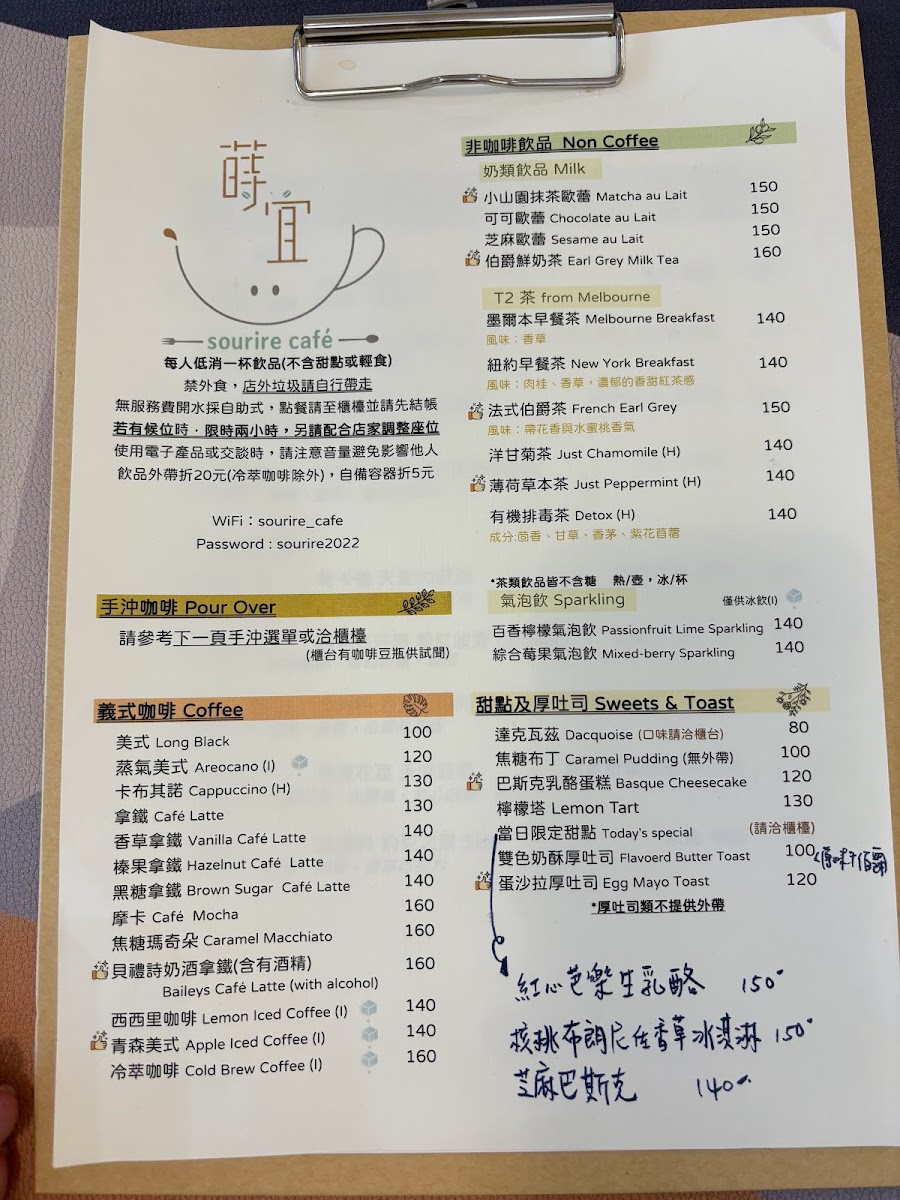 蒔宜
sourire café
每人低消一杯飲品(不含甜點或輕食)
禁外食，店外垃圾請自行帶走
無服務費開水採自助式，點餐請至櫃檯並請先結帳
若有候位時，限時兩小時，另請配合店家調整座位
使用電子產品或交談時，請注意音量避免影響他人
飲品外帶折20元(冷萃咖啡除外)，自備容器折5元
WiFi：sourire_cafe
Password : sourire2022
手沖咖啡 Pour Over
請參考下一頁手沖選單或洽櫃檯
(櫃台有咖啡豆瓶供試聞)
義式咖啡 Coffee
美式 Long Black 100
蒸氣美式 Areocano (I) 120
卡布其諾 Cappuccino (H) 130
拿鐵 Café Latte 130
香草拿鐵 Vanilla Café Latte 140
榛果拿鐵 Hazelnut Café Latte 140
黑糖拿鐵 Brown Sugar Café Latte 140
摩卡 Café Mocha 160
焦糖瑪奇朵 Caramel Macchiato 160
貝禮詩奶酒拿鐵(含有酒精) 160
Baileys Café Latte (with alcohol)
西西里咖啡 Lemon Iced Coffee (I) 140
青森美式 Apple Iced Coffee (I) 140
冷萃咖啡 Cold Brew Coffee (I) 160
非咖啡飲品 Non Coffee
奶類飲品 Milk
小山園抹茶歐蕾 Matcha au Lait 150
可可歐蕾 Chocolate au Lait 150
芝麻歐蕾 Sesame au Lait 150
伯爵鮮奶茶 Earl Grey Milk Tea 160
T2 茶 from Melbourne
墨爾本早餐茶 Melbourne Breakfast 140
風味：香草
紐約早餐茶 New York Breakfast 140
風味：肉桂、香草，濃郁的香甜紅茶感
法式伯爵茶 French Earl Grey 150
風味：帶花香與水蜜桃香氣
洋甘菊茶 Just Chamomile (H) 140
薄荷草本茶 Just Peppermint (H) 140
有機排毒茶 Detox (H) 140
成分:茴香、甘草、香茅、紫花苜蓿
*茶類飲品皆不含糖 熱/壺，冰/杯
氣泡飲 Sparkling 僅供冰飲(I)
百香檸檬氣泡飲 Passionfruit Lime Sparkling 140
綜合莓果氣泡飲 Mixed-berry Sparkling 140
甜點及厚吐司 Sweets & Toast
達克瓦茲 Dacquoise (口味請洽櫃台) 80
焦糖布丁 Caramel Pudding (無外帶) 100
巴斯克乳酪蛋糕 Basque Cheesecake 120
檸檬塔 Lemon Tart 130
當日限定甜點 Today's special (請洽櫃檯)
雙色奶酥厚吐司 Flavoerd Butter Toast 100
蛋沙拉厚吐司 Egg Mayo Toast 120
*厚吐司類不提供外帶
紅心芭樂生乳酪 150
核桃布朗尼佐香草冰淇淋 150
芝麻巴斯克 140